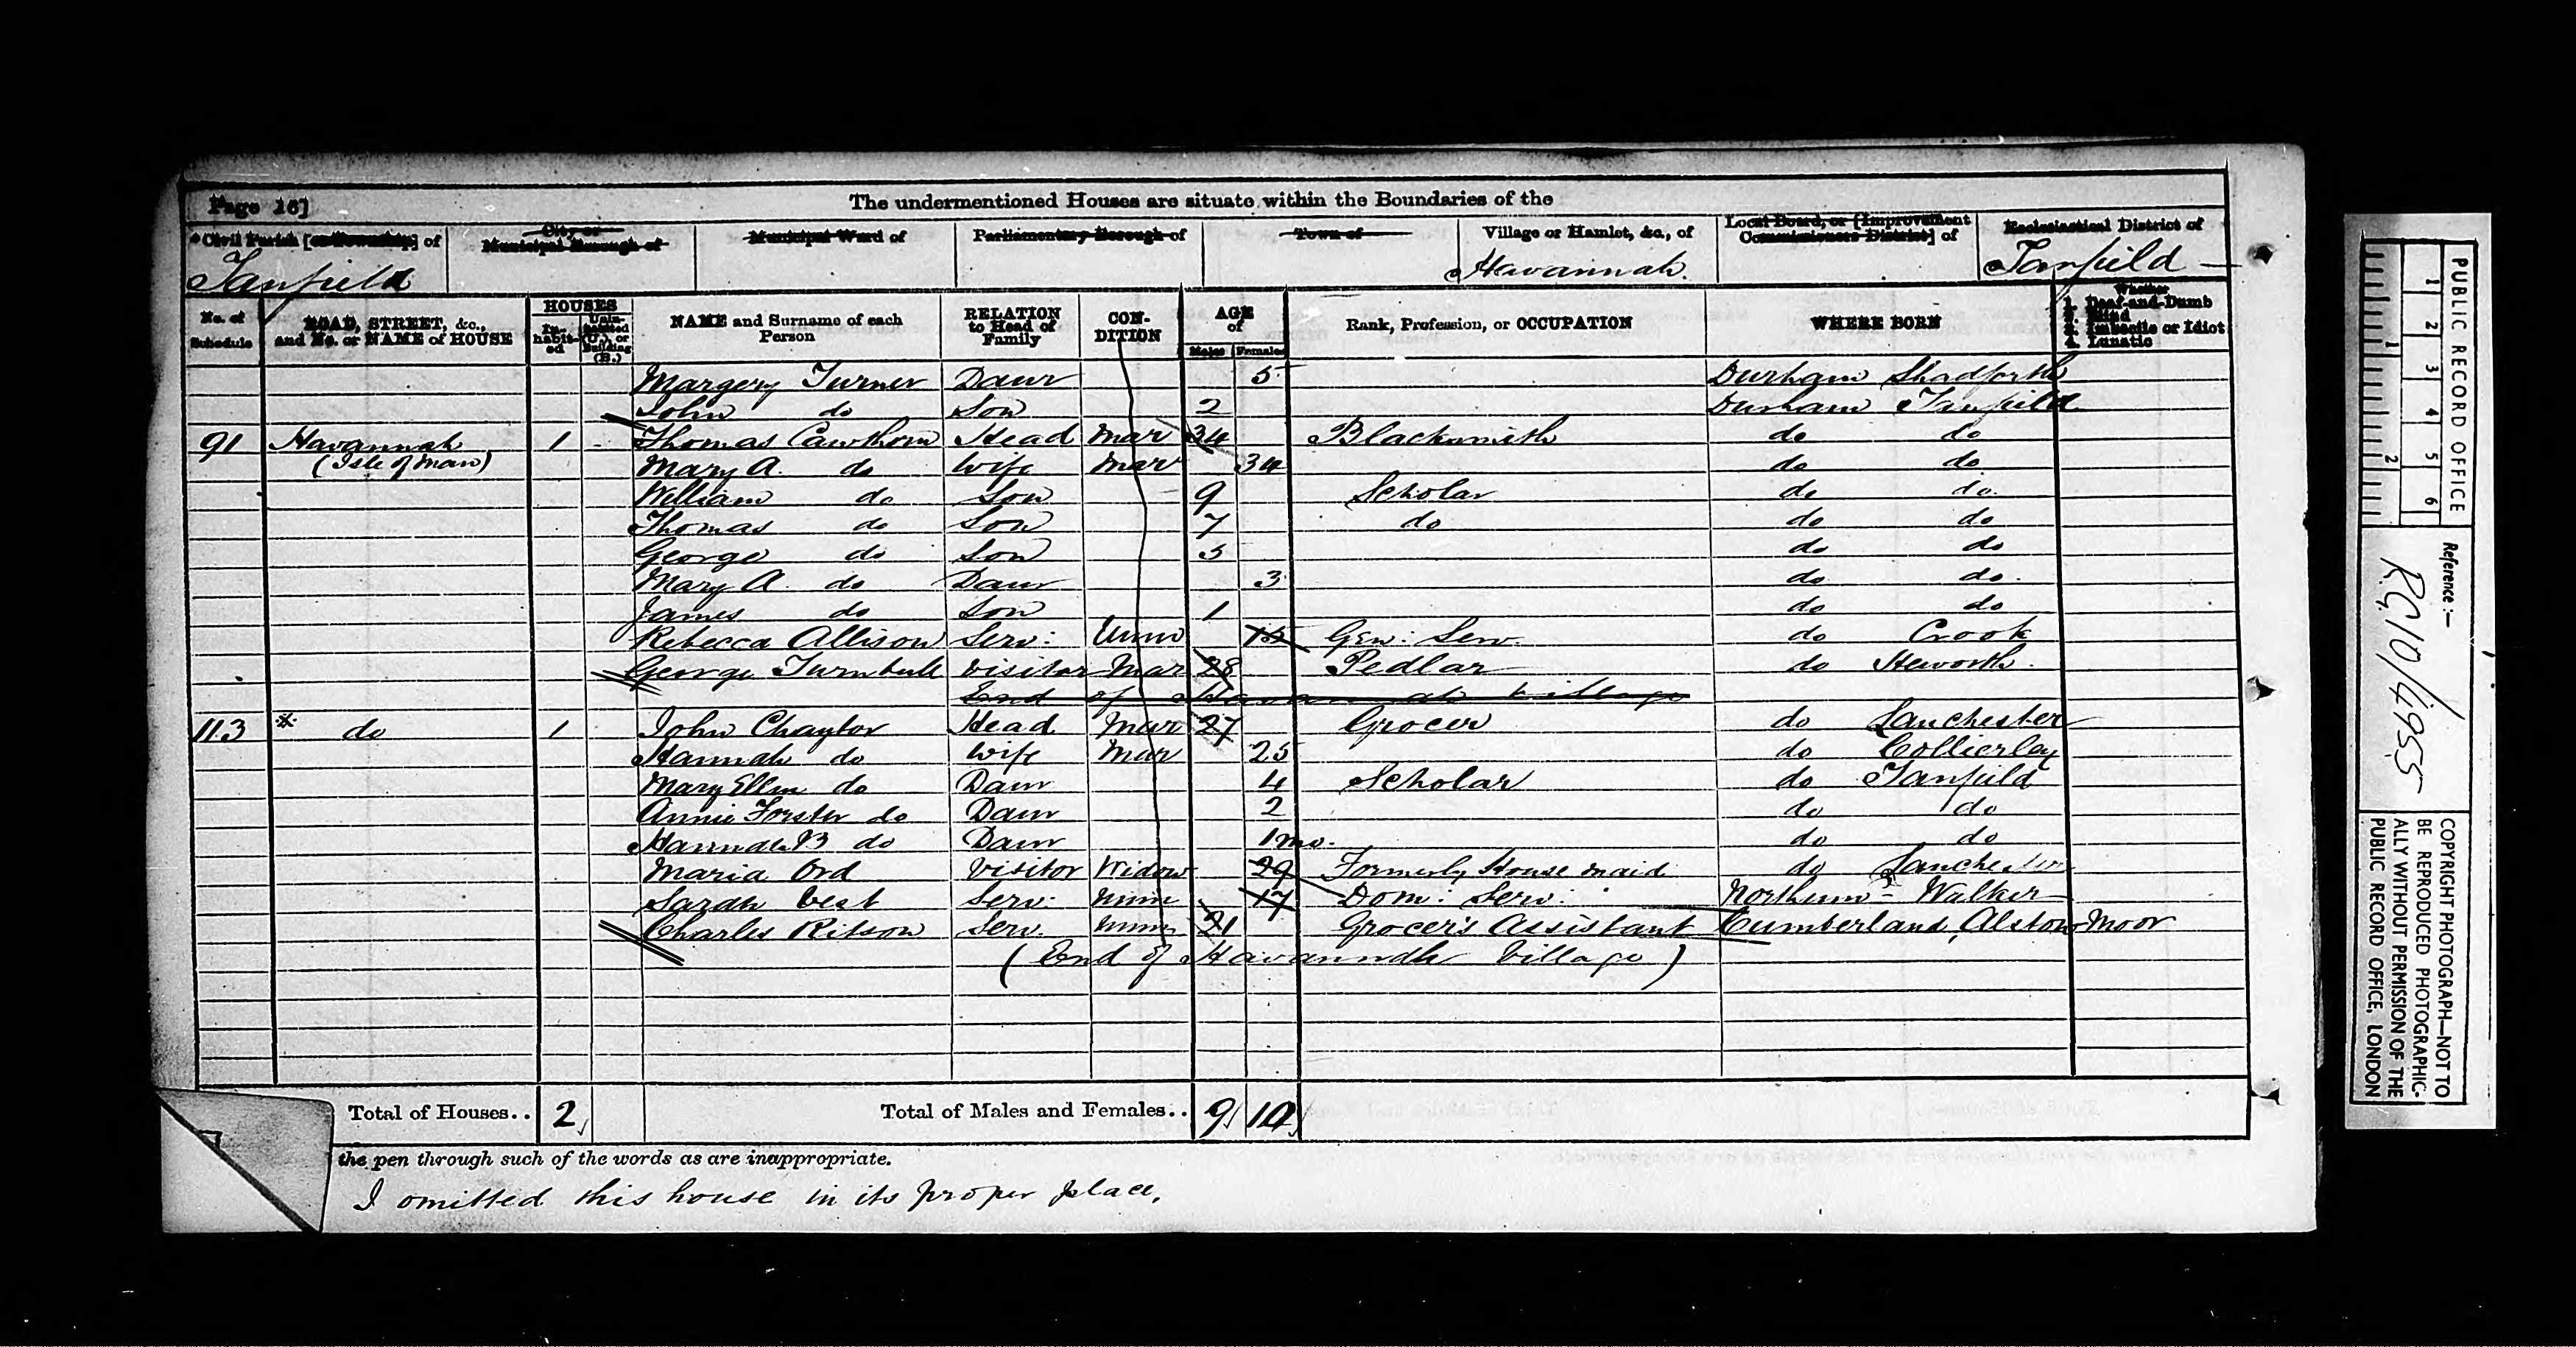 Page 16]
The undermentioned Houses are situate within the Boundaries of the
* Civil Parish [or Township] of
City or Municipal Borough of
Municipal Ward of
Parliamentary Borough of
Town of
Village or Hamlet, &c., of
Local Board, or [Improvement Commissioners District] of
Ecclesiastical District of
Tanfield
Havannah.
Tanfield
No. of Schedule
ROAD, STREET, &c., and No. or NAME of HOUSE
HOUSES
In-habit-ed
Unin-habited (U.), or Building (B.)
NAME and Surname of each Person
RELATION to Head of Family
CON-DITION
AGE of
Males Females
Rank, Profession, or OCCUPATION
WHERE BORN
Whether
1. Deaf-and-Dumb
2. Blind
3. Imbecile or Idiot
4. Lunatic
Margery Turner Daur 5 Durham Shadforth
John do Son 2 Durham Tanfield
91 Havannah 1 Thomas Cawthorn Head Mar 34 Blacksmith do do
(Isle of Man) Mary A. do Wife Mar 34 do do
William do Son 9 Scholar do do
Thomas do Son 7 do do do
George do Son 5 do do
Mary A. do Daur 3 do do
James do Son 1 do do
Rebecca Allison Serv: Unm 15 Gen: Serv. do Crook
George Turnbull Visitor Mar 28 Pedlar do Heworth
End of Havannah Village
113 * do 1 John Chaytor Head Mar 27 Grocer do Lanchester
Hannah do Wife Mar 25 do Collierley
Mary Ellen do Daur 4 Scholar do Tanfield
Annie Forster do Daur 2 do do
Hannah B do Daur 1 mo. do do
Maria Ord Visitor Widow 29 Formerly House maid do Lanchester
Sarah West Serv. Unm 17 Dom: Serv: Northum- Walker
Charles Ritson Serv. Unm 21 Grocer's Assistant Cumberland, Alston Moor
(End of Havannah Village)
Total of Houses.. 2
Total of Males and Females.. 9 10
the pen through such of the words as are inappropriate.
I omitted this house in its proper place.
PUBLIC RECORD OFFICE
1 2 3 4 5 6
1 2
Reference :-
R.G. 10/4955
COPYRIGHT PHOTOGRAPH—NOT TO
BE REPRODUCED PHOTOGRAPHIC-
ALLY WITHOUT PERMISSION OF THE
PUBLIC RECORD OFFICE, LONDON